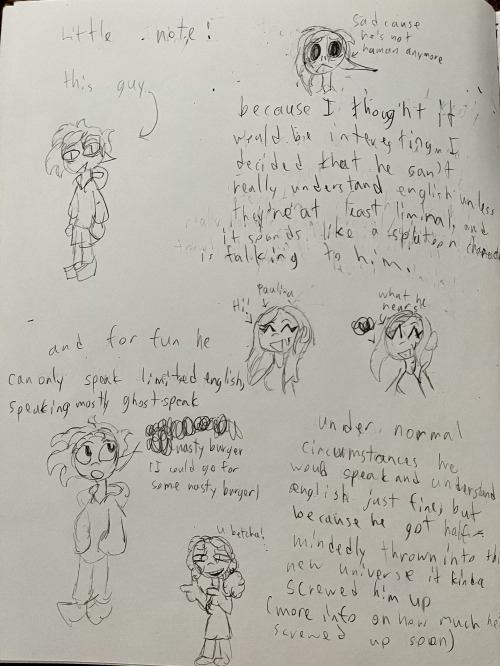 Little note!
this guy
sad cause
he's not
human anymore
because I thought it
would be interesting I
decided that he can't
really understand english unless
they're at least liminal, and
it sounds like a splatoon character
is talking to him.
Paulina
Hi!
what he
hears
and for fun he
can only speak limited english,
speaking mostly ghost-speak
nasty burger
(I could go for
some nasty burger)
u betcha!
under normal
circumstances he
would speak and understand
english just fine, but
because he got half-
mindedly thrown into this
new universe it kinda
screwed him up
(more info on how much he's
screwed up soon)